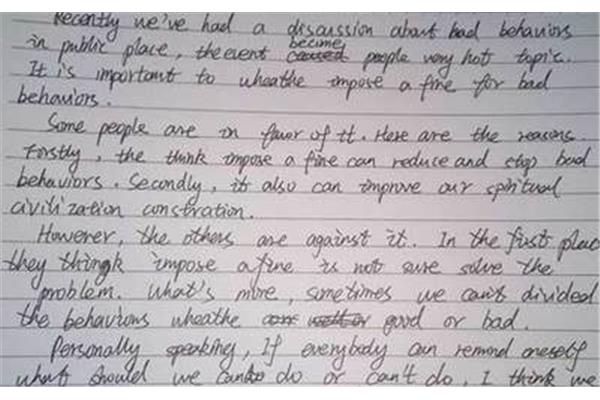 Recently we've had a discussion about bad behaviors
in public place, the event caused become people very hot topic.
It is important to wheathe impose a fine for bad
behaviors.
Some people are in favor of it. Here are the reasons.
Firstly, the think impose a fine can reduce and stop bad
behaviors. Secondly, it also can improve our spiritual
civilization constration.
However, the others are against it. In the first place
they thingk impose a fine is not sure solve the
problem. What's more, sometimes we can't divided
the behaviors wheathe good or bad.
Personally speaking, If everybody can remind oneself
what should we do or can't do, I think we